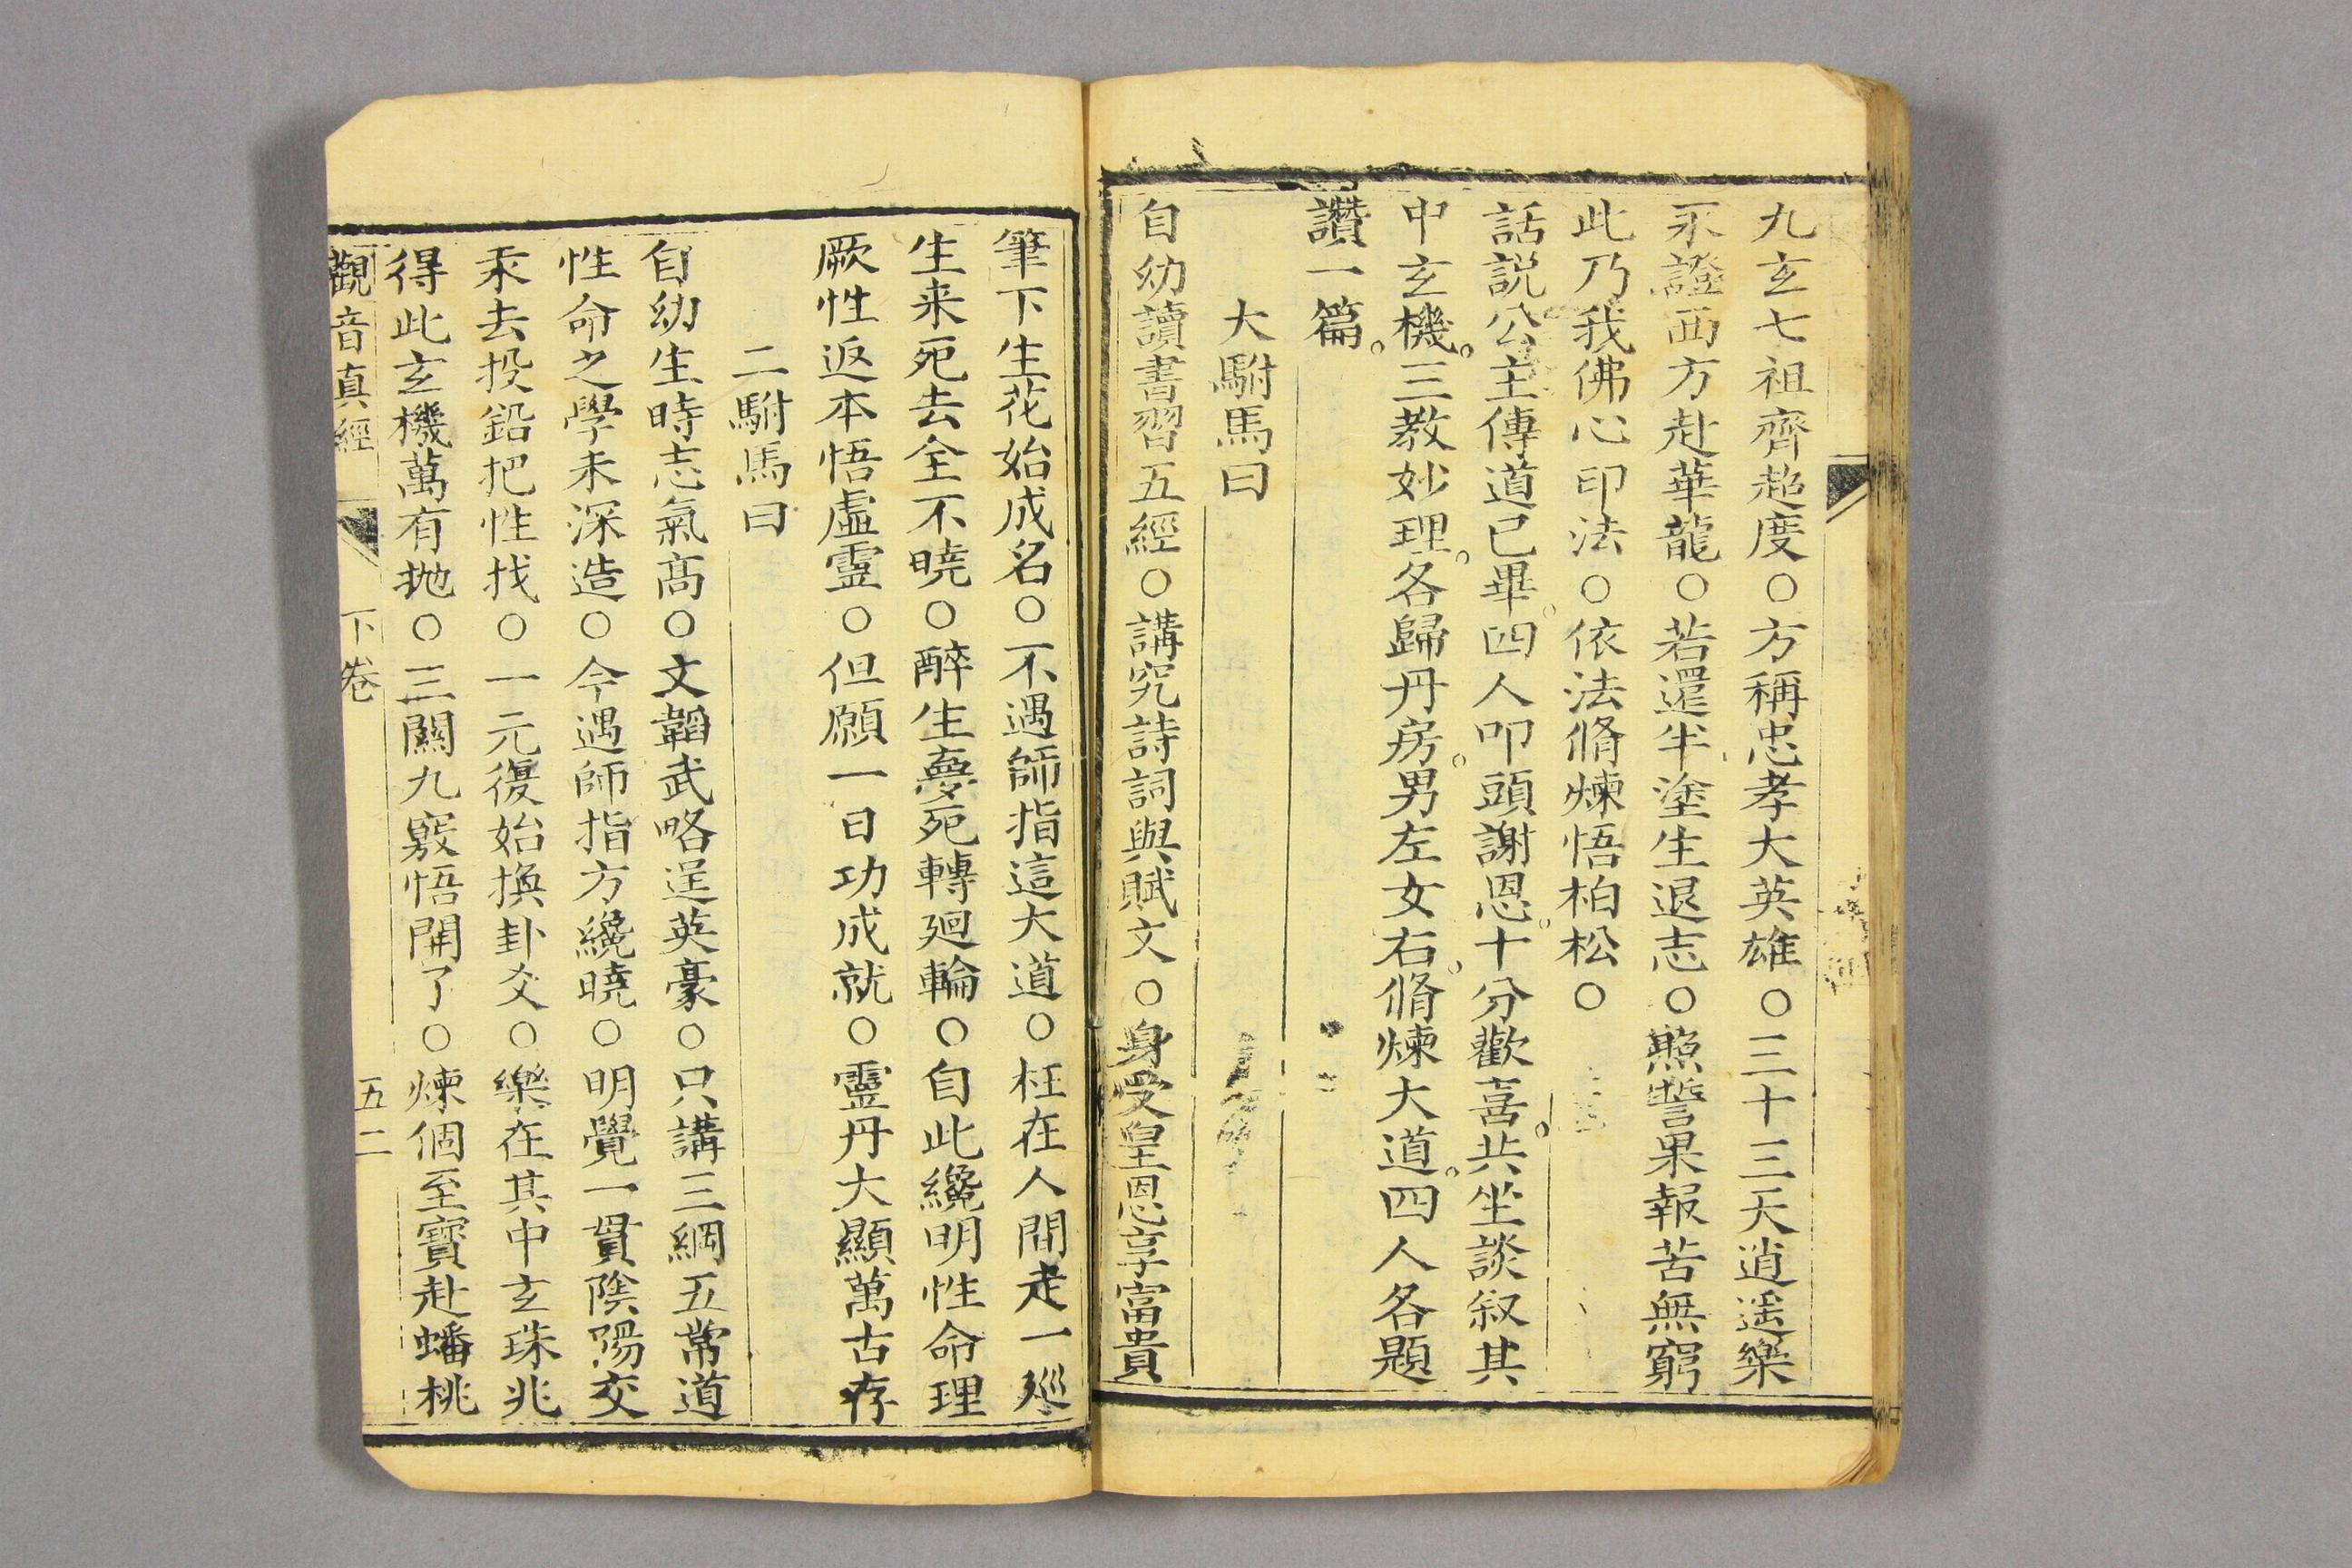 九玄七祖齊超度○方稱忠孝大英雄○三十三天逍遥樂
永證西方赴華龍○若還半塗生退志○照誓果報苦無窮
此乃我佛心印法○依法脩煉悟柏松○
話説公主傳道已畢。四人叩頭謝恩。十分歡喜。共坐談叙其
中玄機。三教妙理。各歸丹房。男左女右。脩煉大道。四人各題
讚一篇。
大駙馬曰
自幼讀書習五經○講究詩詞與賦文○身受皇恩享富貴
筆下生花始成名○不遇師指這大道○枉在人間走一巡
生来死去全不曉○醉生夢死轉廻輪○自此纔明性命理
厥性返本悟虛靈○但願一日功成就○靈丹大顯萬古存
二駙馬曰
自幼生時志氣高○文韜武略逞英豪○只講三綱五常道
性命之學未深造○今遇師指方纔曉○明覺一貫陰陽交
汞去投鉛把性找○一元復始換卦爻○樂在其中玄珠兆
得此玄機萬有抛○三關九竅悟開了○煉個至寶赴蟠桃
觀音真經 下卷 五二